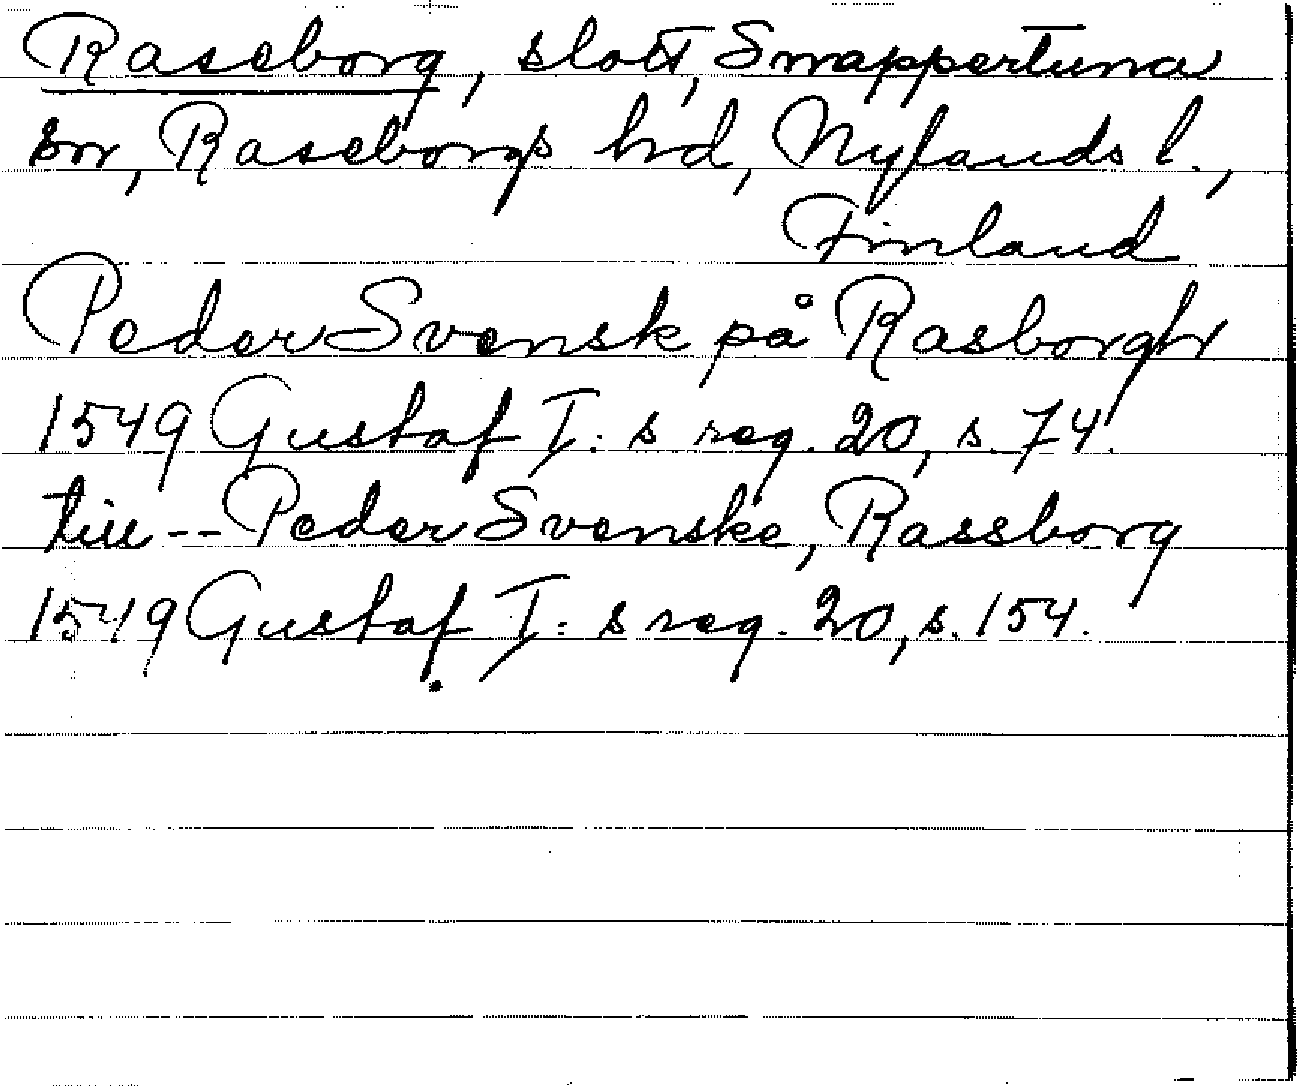 Raseborg, slott, Snappertuna
sn, Raseborgs hd, Nylands l.,
Finland
Peder Svensk på Rasborgh
1549 Gustaf I:s reg. 20, s. 74.
till -- Peder Svenske, Rassborg
1549 Gustaf I:s reg. 20, s. 154.